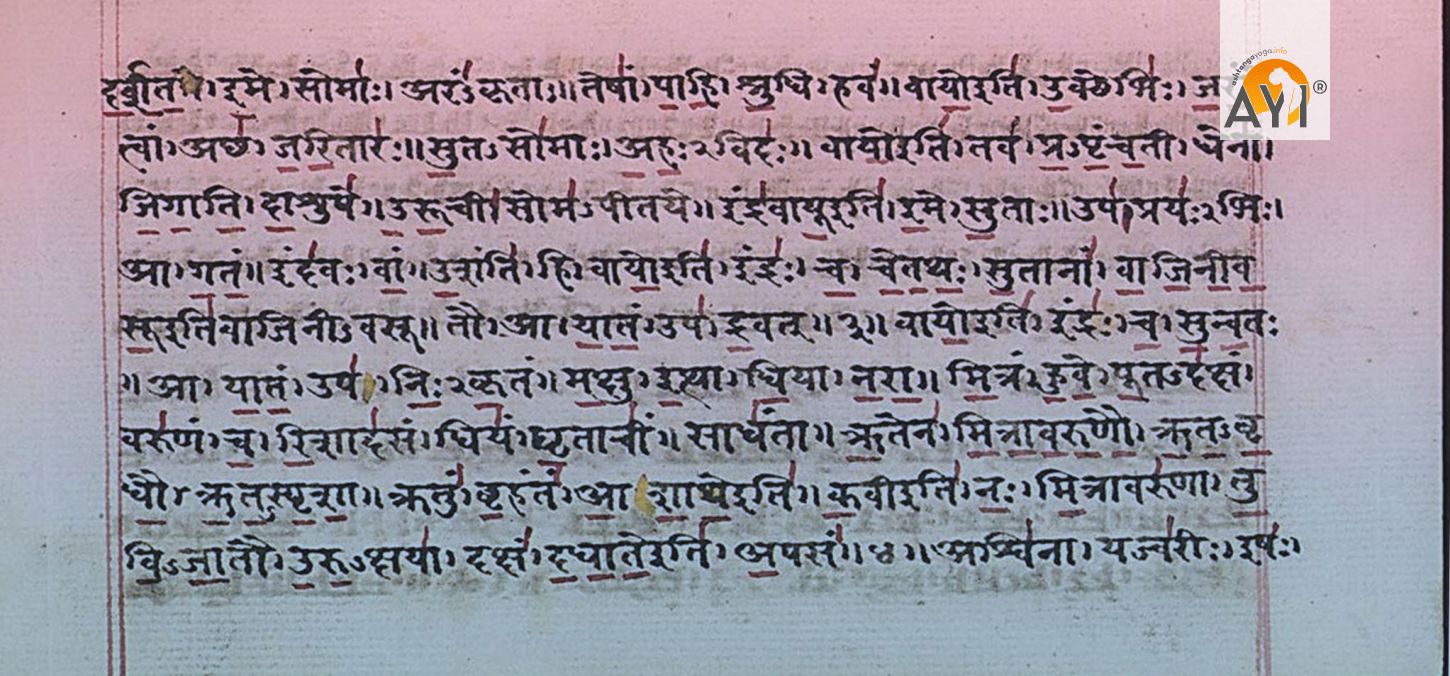 दर्शत। इमे। सोमाः। अरंऽकृताः॥ तेषां। पाहि। श्रुधि। हवं॥ वायोइति। उक्थेभिः। ज
त्वां। अच्छ। जरितारः॥ सुतऽसोमाः। अहःऽविदः॥ वायोइति। तव। प्रऽपृंचती। धेना।
जिगाति। दाशुषे॥ उरूची। सोमऽपीतये॥ इंद्रवायूइति। इमे। सुताः॥ उप। प्रयःऽभिः।
आ। गतं॥ इंदवः। वां॥ उशंति। हि। वायोइति। इंद्रः। च। चेतथः। सुतानां। वाजिनीव
सूइतिवाजिनीऽवसू॥ तौ। आ। यातं। उप। द्रवत्॥३॥ वायोइति। इंद्रः। च। सुन्वतः
॥आ। यातं। उप। निःऽकृतं॥ मक्षु। इत्था। धिया। नरा॥ मित्रं। हुवे। पूतऽदक्षं।
वरुणं। च। रिशादसं। धियं। घृताचीं॥ साधंता॥ ऋतेन। मित्रावरुणौ। ऋतऽवृ
धौ। ऋतऽस्पृशा॥ क्रतुं। बृहंतं। आशाथेइति॥ कवीइति। नः। मित्रावरुणा। तु
विऽजातौ। उरुऽक्षया। दक्षं। दधातेइति। अपसं॥४॥ अश्विना। यज्वरीः। इषः।
ashtangayoga.info
AYI®